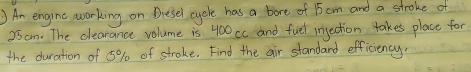 ) An engine working on Diesel cycle has a bore of 15 cm and a stroke of
25 cm. The clearance volume is 400 cc and fuel injection takes place for
the duration of 5% of stroke. Find the air standard efficiency.